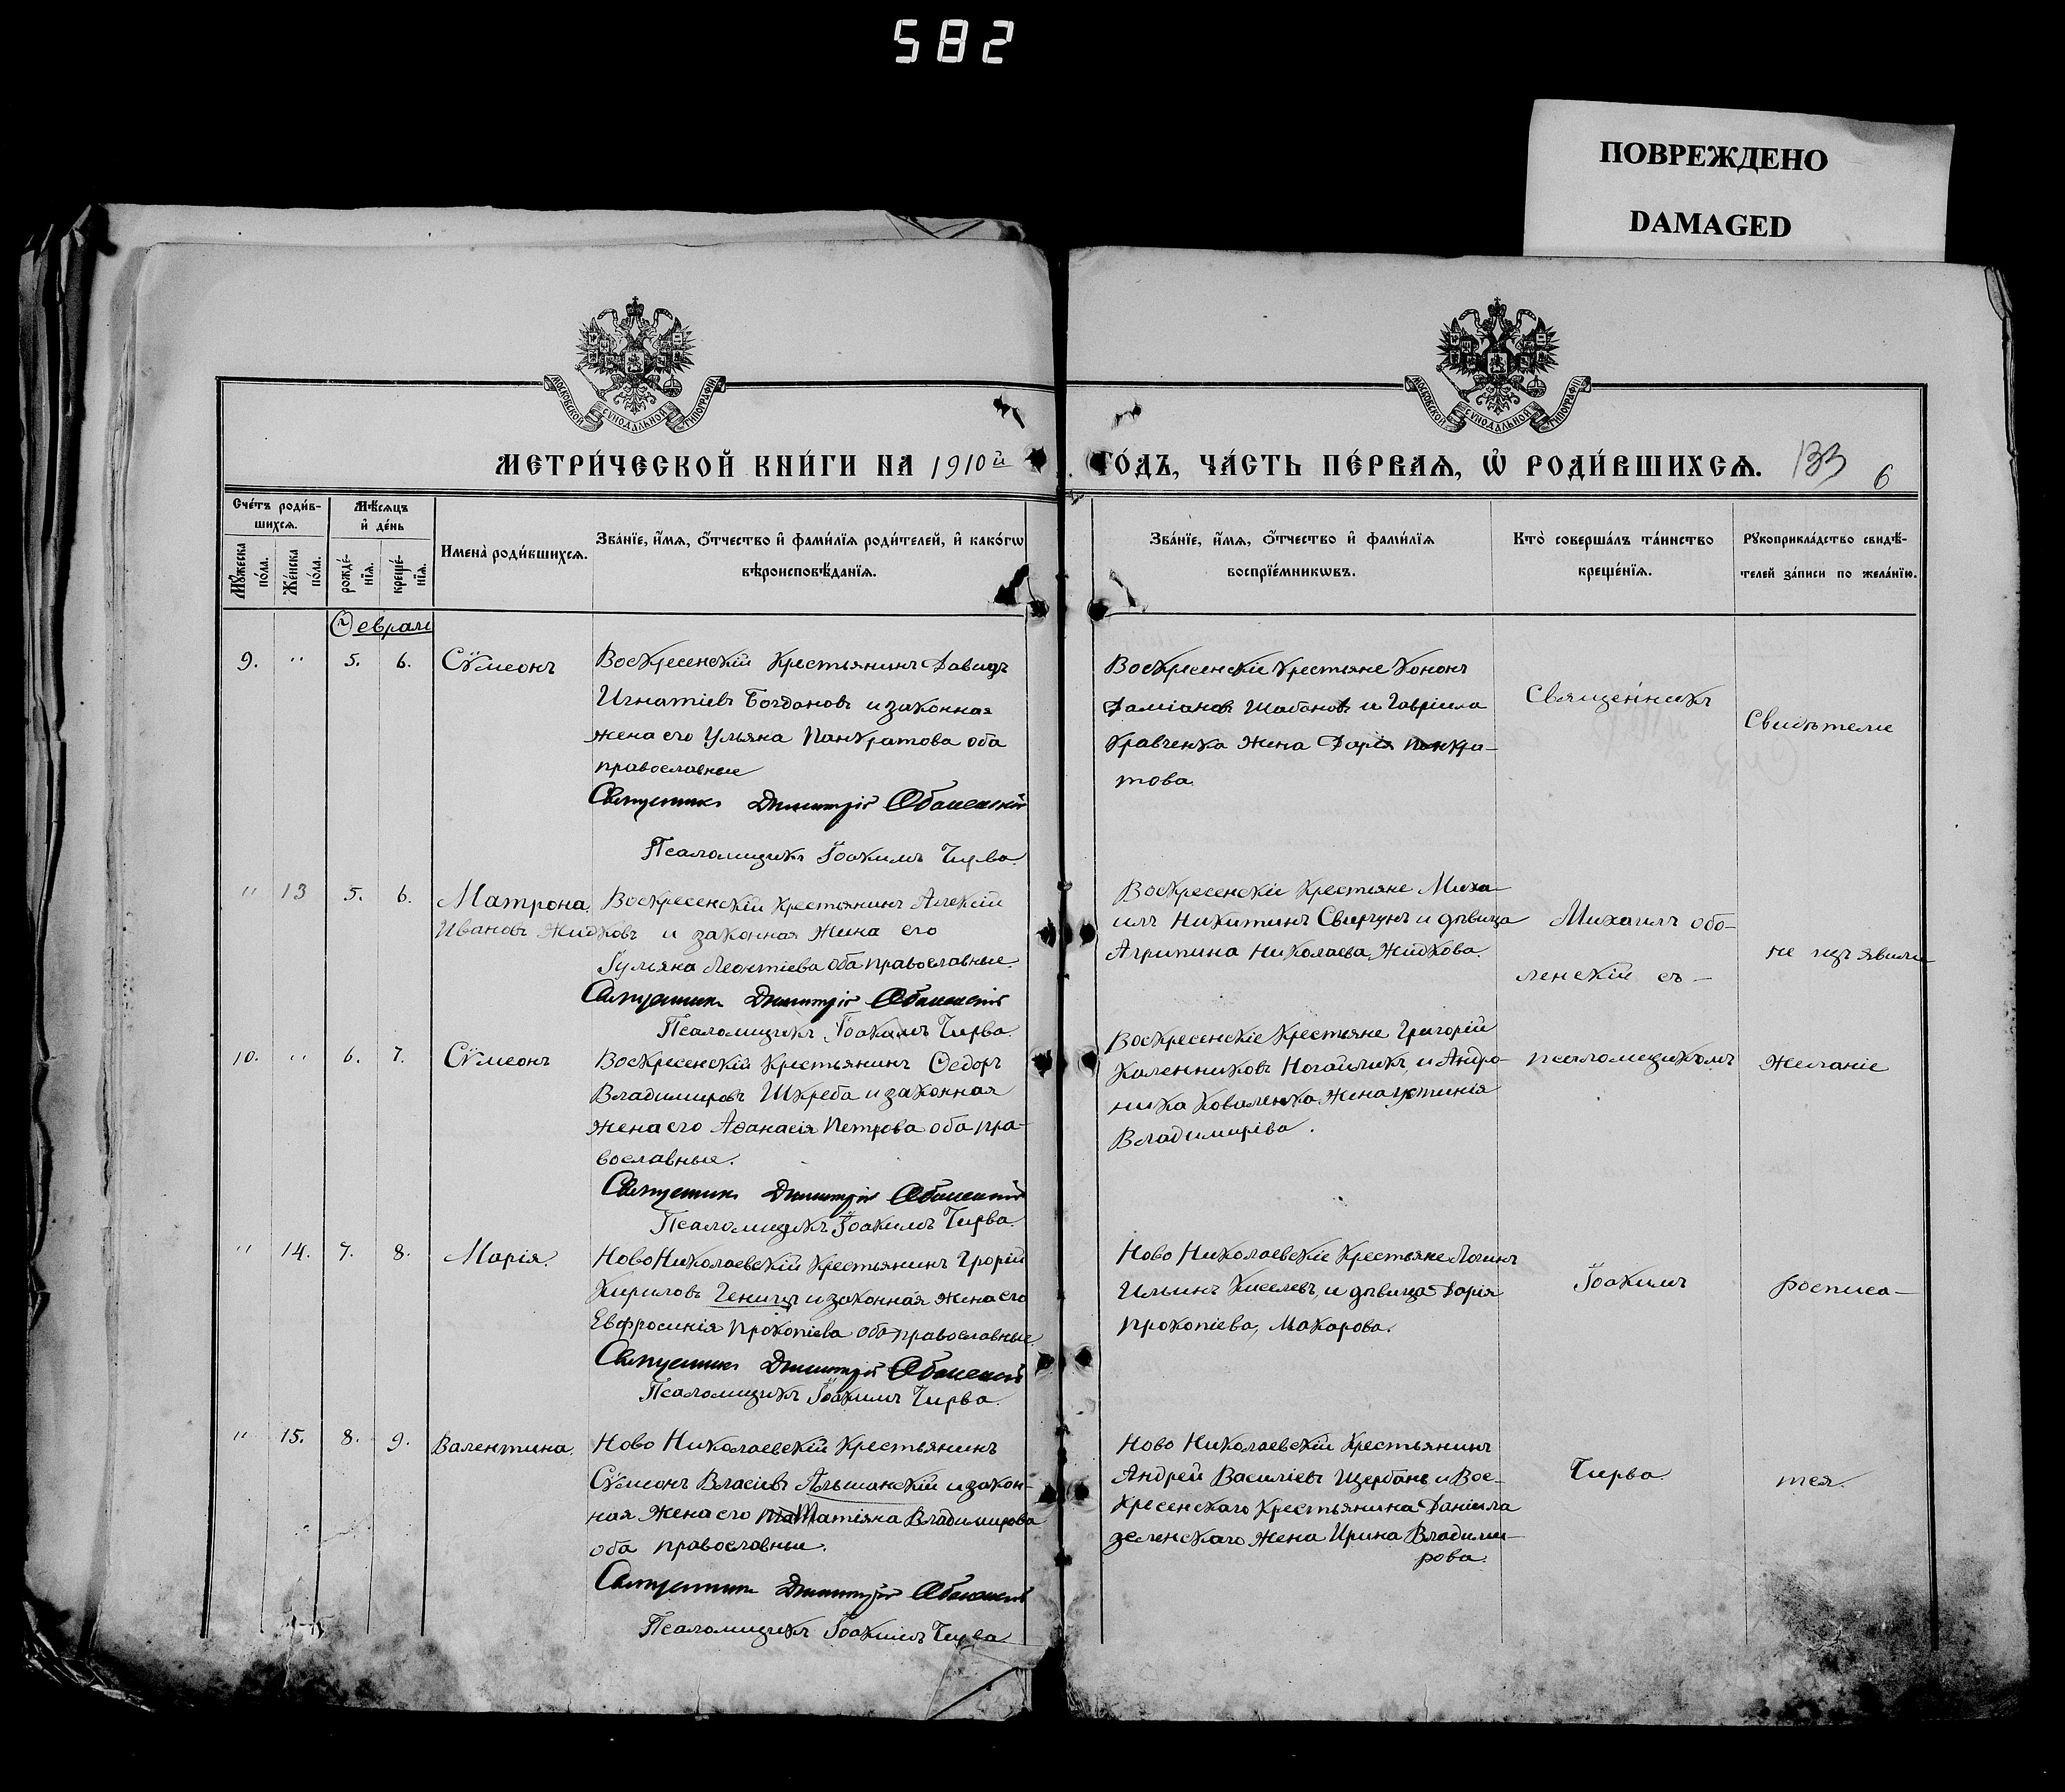 582
ПОВРЕЖДЕНО
DAMAGED
МОСКОВСКОЙ СѴНОДАЛЬНОЙ ТИПОГРАФІИ
МОСКОВСКОЙ СѴНОДАЛЬНОЙ ТИПОГРАФІИ
МЕТРИ́ЧЕСКОЙ КНИ́ГИ НА 1910й
ГО́ДЪ, ЧА́СТЬ ПЕ́РВАѦ, Ѡ҆ РОДИ́ВШИХСѦ. 133 6
Сче́тъ роди́в-
шихсѧ.
Мꙋ́жеска по́ла.
Же́нска по́ла.
Мѣ́сѧцъ
и҆ де́нь
рожде́-
нїѧ.
креще́-
нїѧ.
Имена̀ роди́вшихсѧ.
Зва́нїе, и҆́мѧ, ѻ҆́тчество и҆ фами́лїѧ роди́телей, и҆ како́гѡ
вѣроисповѣ́данїѧ.
Зва́нїе, и҆́мѧ, ѻ҆́тчество и҆ фами́лїѧ
воспрїе́мникѡвъ.
Кто̀ соверша́лъ та́инство
креще́нїѧ.
Рꙋкоприкла́дство свидѣ́-
телей за́писи по жела́нїю.
Февраль
9. " 5. 6. Сѵмеонъ
Воскресенскій Крестьянинъ Давидъ
Игнатіевъ Богдановъ и законная
жена его Ульяна Панкратова оба
православные
Священникъ Димитрій Оболенскій
Псаломщикъ Іоакимъ Чирва.
Воскресенскіе Крестьяне Кононъ
Даміановъ Шабановъ и Гавріила
Кравченка жена Дарія Панкра-
това
" 13 5. 6. Матрона.
Воскресенскій Крестьянинъ Алексій
Ивановъ Жидковъ и законная жена его
Гульяна Леонтіева оба православные.
Священникъ Димитрій Оболенскій
Псаломщикъ Іоакимъ Чирва.
Воскресенскіе Крестьяне Миха-
илъ Никитинъ Свиргунъ и дѣвица
Агрипина Николаева Жидкова.
10. " 6. 7. Сѵмеонъ
Воскресенскій Крестьянинъ Ѳедоръ
Владимировъ Шкреба и законная
жена его Аѳанасія Петрова оба пра-
вославные.
Священникъ Димитрій Оболенскій
Псаломщикъ Іоакимъ Чирва.
Воскресенскіе Крестьяне Григорій
Калениковъ Ногайликъ и Андро-
ника Коваленка жена Устинія
Владимирова.
" 14. 7. 8. Марія.
Ново Николаевскій Крестьянинъ Грорій
Кириловъ Геницъ и законная жена его
Евфросинія Прокопіева оба православные.
Священникъ Димитрій Оболенскій
Псаломщикъ Іоакимъ Чирва.
Ново Николаевскіе Крестьяне Логинъ
Ильинъ Киселевъ, и дѣвица Дарія
Прокопіева, Макарова.
" 15. 8. 9. Валентина.
Ново Николаевскій Крестьянинъ
Сѵмеонъ Власіевъ Альшанскій и закон-
ная жена его Татіяна Владимирова
оба православные.
Священникъ Димитрій Оболенскій
Псаломщикъ Іоакимъ Чирва
Ново Николаевскій Крестьянинъ
Андрей Василіевъ Щербань и Вос-
кресенскаго Крестьянина Даніила
Зеленскаго жена Ирина Владими-
рова.
Священникъ
Михаилъ Обо-
ленскій съ-
псаломщикомъ
Іоакимъ
Чирва.
Свидѣтели
не изъявили
желаніе
росписа-
тся.